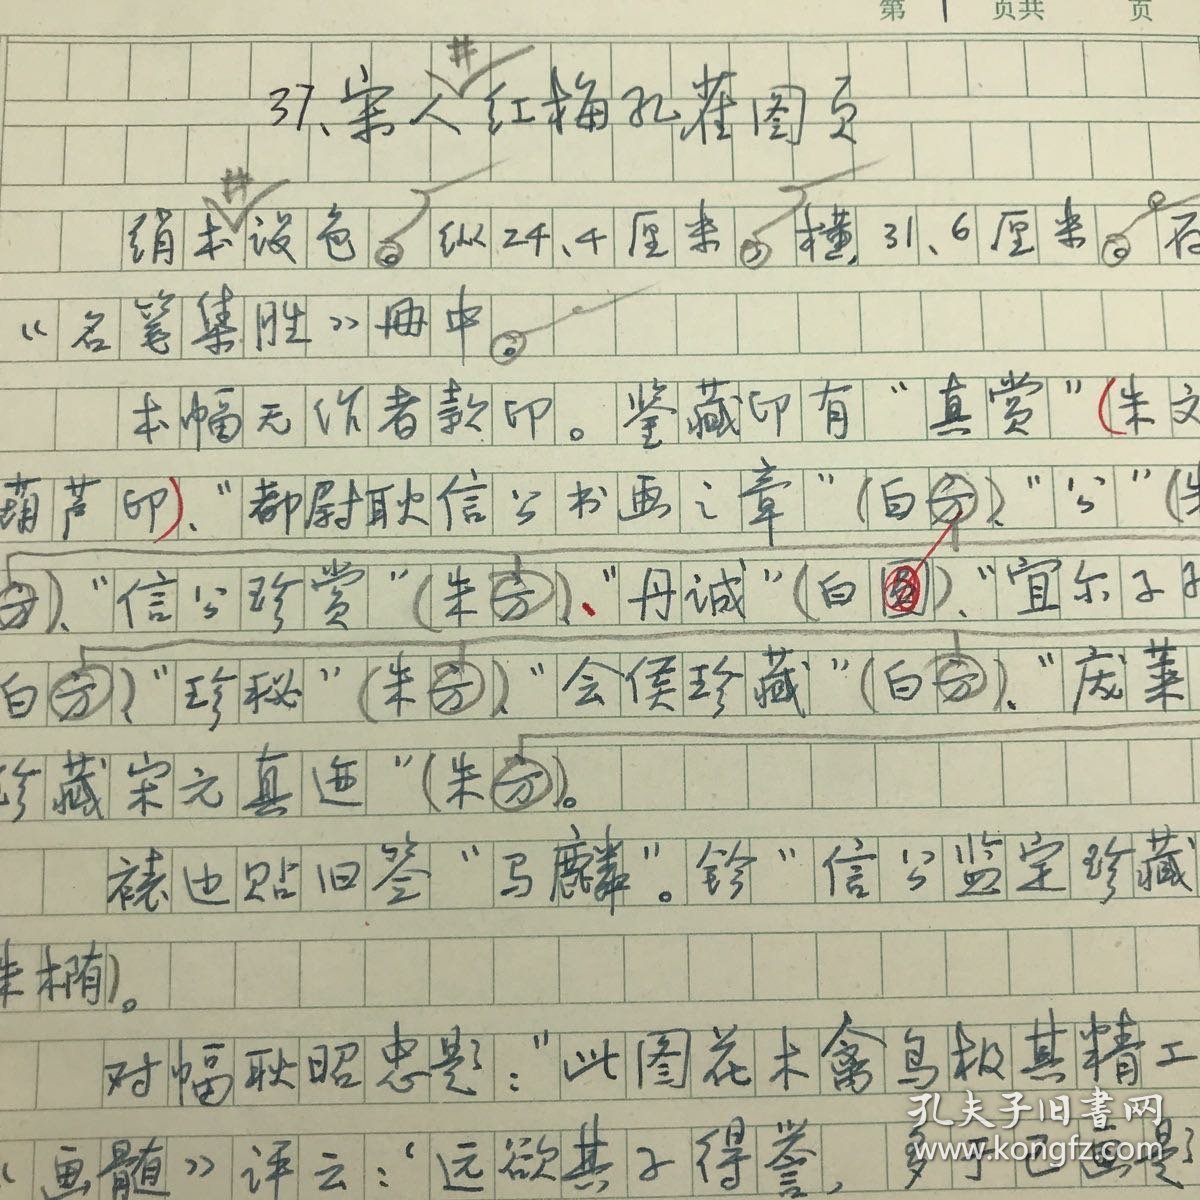 第 1 页共 页
37、宋人 # 红梅孔雀图页
绢本 # 设色。纵24.4厘米，横31.6厘米。存
《名笔集胜》册中。
本幅无作者款印。鉴藏印有“真赏”（朱文
葫芦印）、“都尉耿信公书画之章”（白方）、“公”（朱
方）、“信公珍赏”（朱方）、“丹诚”（白）、“宜尔子孙
白方）、“珍秘”（朱方）、“会侯珍藏”（白方）、“庞莱
珍藏宋元真迹”（朱方）。
裱边贴旧签“马麟”。钤“信公监定珍藏
朱椭）。
对幅耿昭忠题：“此图花木禽鸟极其精工
《画髓》评云：‘远欲其子得誉，多于己画题
孔夫子旧书网
www.kongfz.com